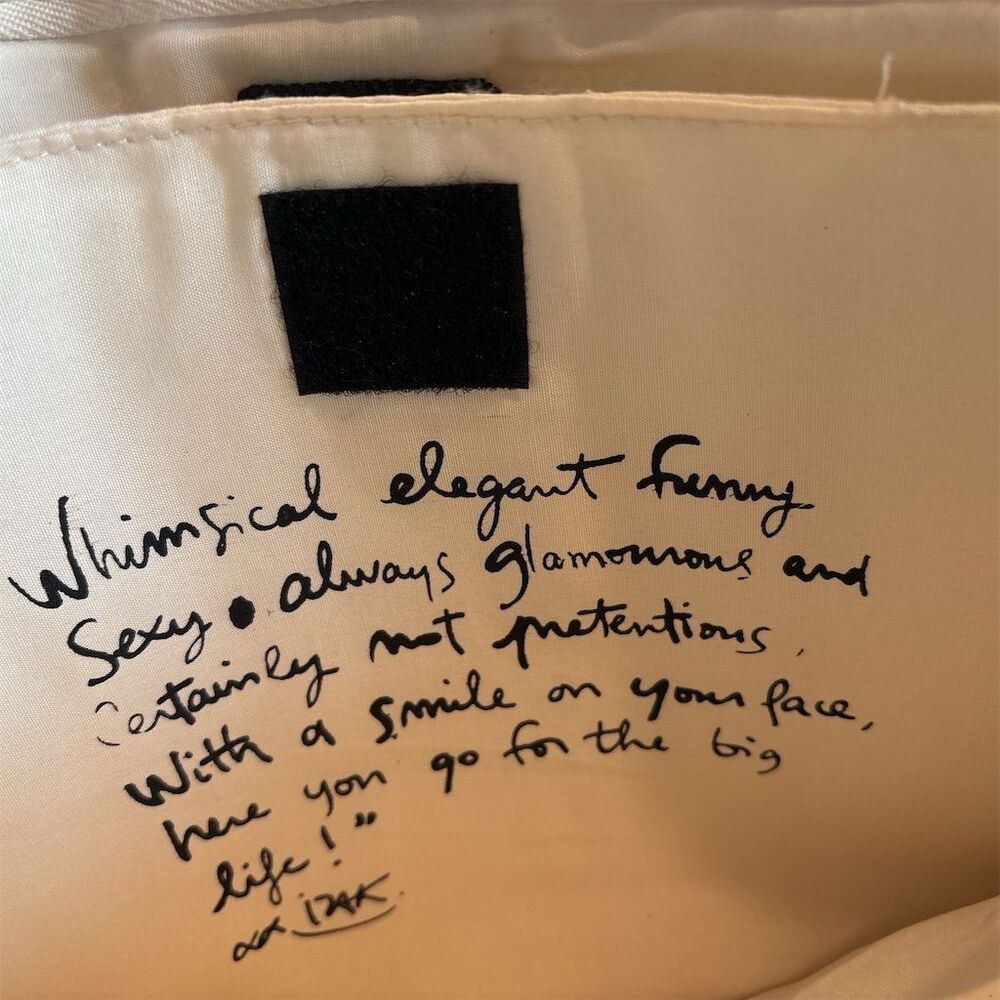 Whimsical elegant funny
Sexy • always glamourous and
Certainly not pretentious,
With a smile on your face,
here you go for the big
life!"
IZAK